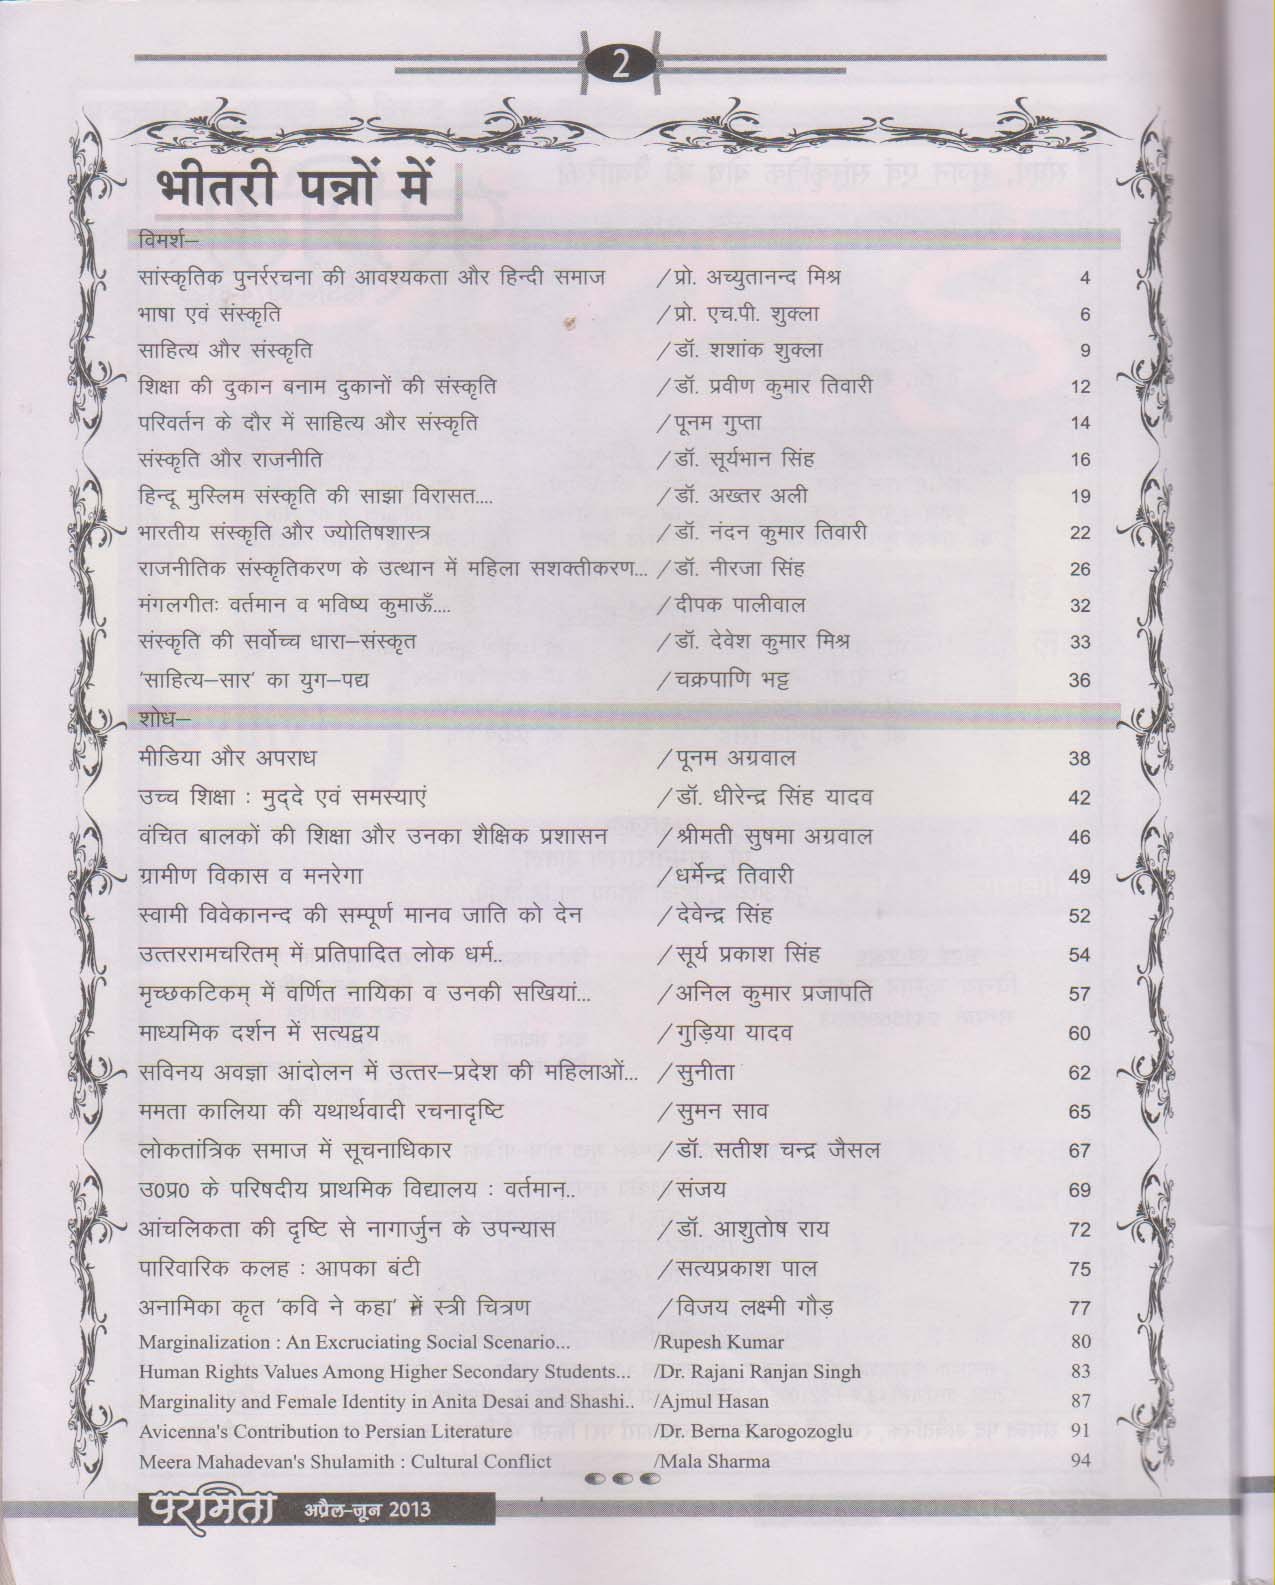 2
भीतरी पन्नों में
विमर्श–
सांस्कृतिक पुनर्ररचना की आवश्यकता और हिन्दी समाज /प्रो. अच्युतानन्द मिश्र 4
भाषा एवं संस्कृति /प्रो. एच.पी. शुक्ला 6
साहित्य और संस्कृति /डॉ. शशांक शुक्ला 9
शिक्षा की दुकान बनाम दुकानों की संस्कृति /डॉ. प्रवीण कुमार तिवारी 12
परिवर्तन के दौर में साहित्य और संस्कृति /पूनम गुप्ता 14
संस्कृति और राजनीति /डॉ. सूर्यभान सिंह 16
हिन्दू मुस्लिम संस्कृति की साझा विरासत.... /डॉ. अख्तर अली 19
भारतीय संस्कृति और ज्योतिषशास्त्र /डॉ. नंदन कुमार तिवारी 22
राजनीतिक संस्कृतिकरण के उत्थान में महिला सशक्तीकरण... /डॉ. नीरजा सिंह 26
मंगलगीतः वर्तमान व भविष्य कुमाऊँ.... /दीपक पालीवाल 32
संस्कृति की सर्वोच्च धारा–संस्कृत /डॉ. देवेश कुमार मिश्र 33
'साहित्य–सार' का युग–पद्य /चक्रपाणि भट्ट 36
शोध–
मीडिया और अपराध /पूनम अग्रवाल 38
उच्च शिक्षा : मुद्दे एवं समस्याएं /डॉ. धीरेन्द्र सिंह यादव 42
वंचित बालकों की शिक्षा और उनका शैक्षिक प्रशासन /श्रीमती सुषमा अग्रवाल 46
ग्रामीण विकास व मनरेगा /धर्मेन्द्र तिवारी 49
स्वामी विवेकानन्द की सम्पूर्ण मानव जाति को देन /देवेन्द्र सिंह 52
उत्तररामचरितम् में प्रतिपादित लोक धर्म.. /सूर्य प्रकाश सिंह 54
मृच्छकटिकम् में वर्णित नायिका व उनकी सखियां... /अनिल कुमार प्रजापति 57
माध्यमिक दर्शन में सत्यद्वय /गुड़िया यादव 60
सविनय अवज्ञा आंदोलन में उत्तर–प्रदेश की महिलाओं... /सुनीता 62
ममता कालिया की यथार्थवादी रचनादृष्टि /सुमन साव 65
लोकतांत्रिक समाज में सूचनाधिकार /डॉ. सतीश चन्द्र जैसल 67
उ0प्र0 के परिषदीय प्राथमिक विद्यालय : वर्तमान.. /संजय 69
आंचलिकता की दृष्टि से नागार्जुन के उपन्यास /डॉ. आशुतोष राय 72
पारिवारिक कलह : आपका बंटी /सत्यप्रकाश पाल 75
अनामिका कृत 'कवि ने कहा' में स्त्री चित्रण /विजय लक्ष्मी गौड़ 77
Marginalization : An Excruciating Social Scenario... /Rupesh Kumar 80
Human Rights Values Among Higher Secondary Students... /Dr. Rajani Ranjan Singh 83
Marginality and Female Identity in Anita Desai and Shashi.. /Ajmul Hasan 87
Avicenna's Contribution to Persian Literature /Dr. Berna Karogozoglu 91
Meera Mahadevan's Shulamith : Cultural Conflict /Mala Sharma 94
परमिता अप्रैल–जून 2013